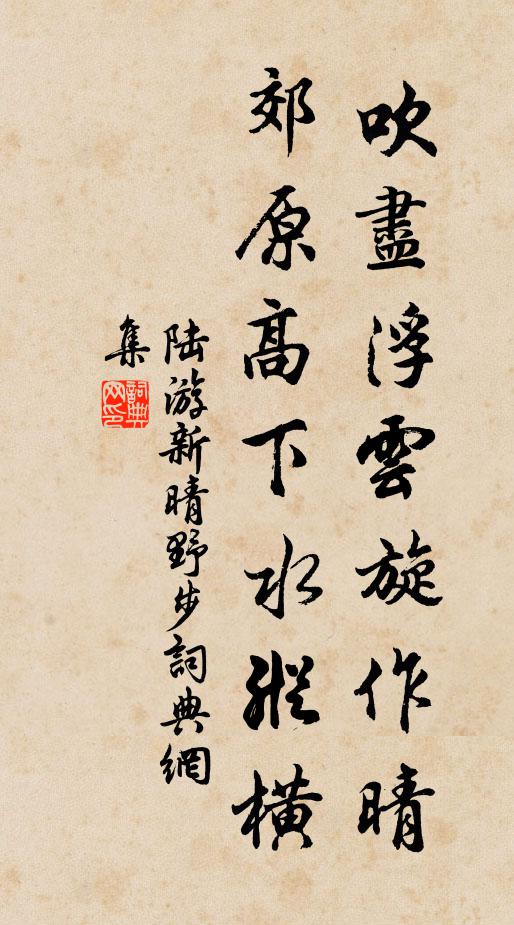 吹盡浮雲旋作晴
郊原高下水縱橫
陆游新晴野步詞典網
集
詞典網印